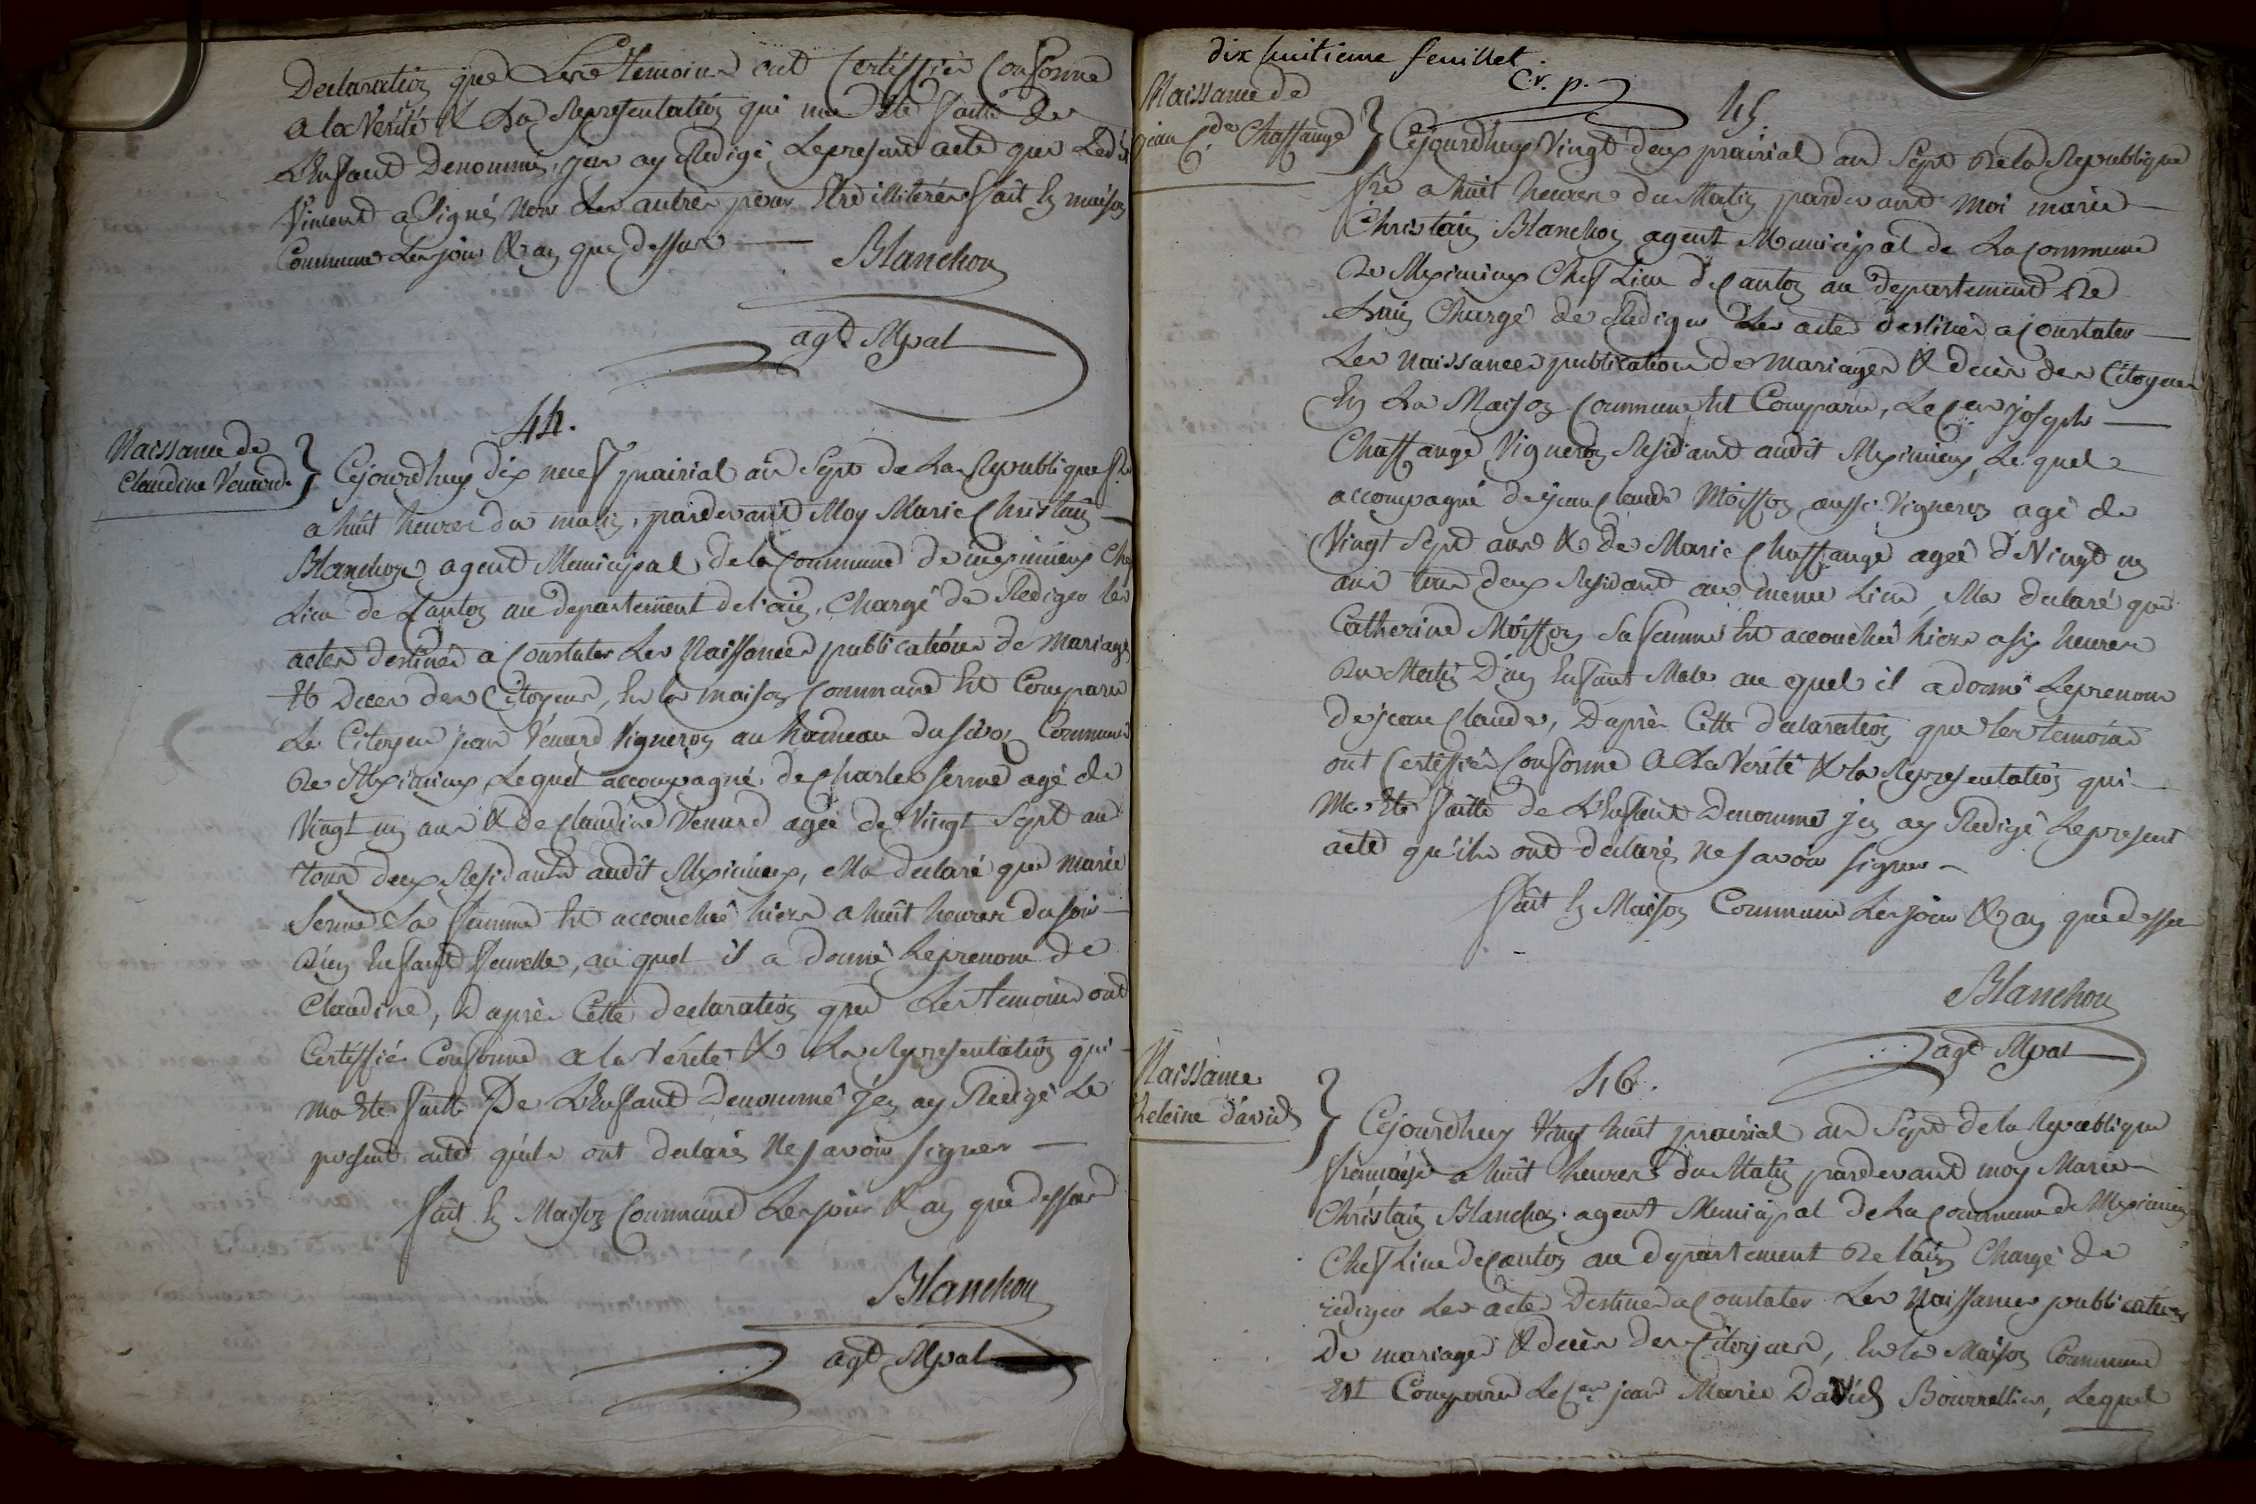 Declaration que Les temoins ont Certiffiés Conforme
a la Vérité & La Representation qui ma Eté faitte de
L'Enfant Denommé, j'en ay Redigé Le present acte que Ledt
Vincent a Signé Non Les autres pour Etre illiterés fait En maison
Commune Les jour & an que dessus
Blanchon
agt Mpal
44.
Naissance de
Claudine Venard
Cejourdhuy dix neuf prairial an Sept de La Republique fse
a huit heures du matin, pardevant Moy Marie Christain
Blanchon agent Municipal de la Commune de meximieux Chef
Lieu de Canton au departement de l'ain, Chargé de Rediger les
actes destinés a Constater Les Naissances publications de Mariage
Et Deces des Citoyens, En la maison Commune Est Comparu
Le Citoyen jean Venard Vigneron au hameau du Commune
De Meximieux, Lequel accompagné de Charles ferme agé de
Vingt un ans & de Claudine Venard agée de Vingt Sept ans
tous deux Residants audit Meximieux, Ma declaré que Marie
ferme Sa femme Est accouchée hiere a huit heures du soir
D'un Enfant femelle, au quel il a donné Le prenom de
Claudine, D'après Cette declaration que Les temoins ont
Certiffié Conforme a la Vérité & La Representation qui
ma Eté faitte De L'Enfant Denommé J'en ay Redigé Le
present acte qu'ils ont declarés Ne savoir Signer
fait En Maison Commune Les jour & an que dessus
Blanchon
agt Mpal
dix huitieme feuillet.
C. p.
Naissance de
jean Cde Chaffange
45.
Cejourdhuy Vingt deux prairial an Sept De la Republique
fse a huit heures du Matin pardevant Moi marie
Christain Blanchon agent Municipal de La Commune
De Meximieux Chef Lieu de Canton au departement De
Lain Chargé de Rediger Les actes destinés a Constater
Les Naissances publications de Mariages & deces des Citoyens
En La Maison Commune Est Comparu, Le Cen joseph
Chaffange Vigneron Residant audit Meximieux, Lequel
accompagné de jean Claude Moisson aussi Vigneron agé de
Vingt Sept ans & de Marie Chaffange ageé de Vingt un
ans tous deux Residant au meme Lieu, Ma declaré que
Catherine Moisson Sa femme Est accouchée hiere a six heures
Du Matin D'un Enfant Male au quel il a donné Le prenom
de jean Claude, D'après Cette declaration que les temoins
ont Certiffiés Conforme a La Vérité & la Representation qui
Ma Eté faitte de L'Enfant Denommé j'en ay Redigé Le present
acte qu'ils ont declarés Ne savoir signer
fait En Maison Commune Les jour & an que dessus
Blanchon
agt Mpal
Naissance
heleine David
46.
Cejourdhuy Vingt huit prairial an Sept de la Republique
française a huit heures du Matin pardevant moy Marie
Christain Blanchon agent Municipal de La Commune de Meximieux
Chef Lieu de Canton au departement De lain Chargé de
rediger Les actes Destinés a Constater Les Naissances publications
De mariages & deces Des Citoyens, En la Maison Commune
Est Comparu Le Cen jean Marie David Bourrellier, Lequel